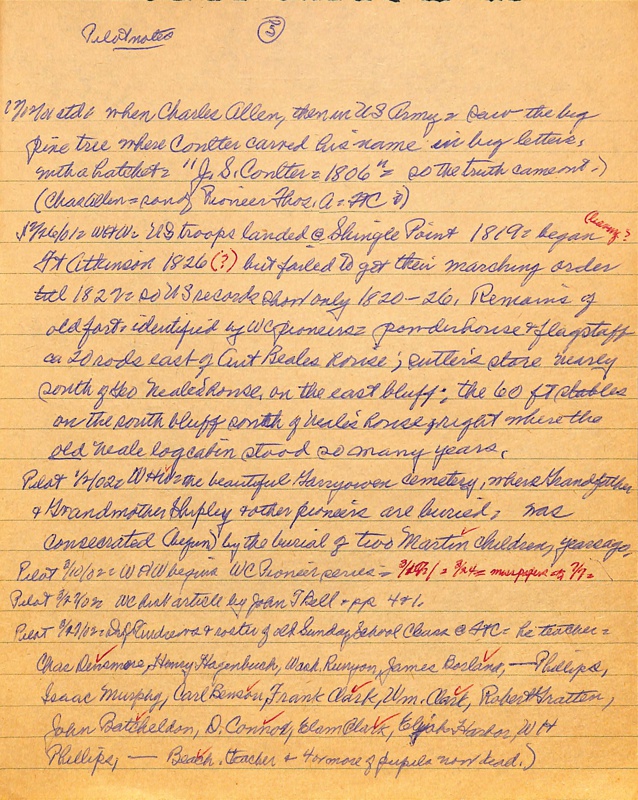 Pilot notes
5
when Charles Allen, then in US Army = saw the big
pine tree where Coulter carved his name in big letters,
with a hatchet = "J. S. Coulter = 1806" = so the truth came out.)
(Chas Allen = son of Pioneer Thos. A = FtC)
clearing?
12/26/01 = W&W = US troops landed @ Shingle Point 1819 = began
Ft Atkinson 1826 (?) but failed to get their marching order
till 1827 = so US records show only 1820-26. Remains of
old fort identified by WC pioneers = powderhouse & flagstaff
ca 20 rods east of Curt Beales house; sutler's store nearly
south of Geo Neale's house, on the east bluff; the 60 ft stables
on the south bluff south of Neale's house & right where the
old Neale log cabin stood so many years.
Pilot 1/2/02 = W&W = the beautiful Garryowen cemetery, where Grandfather
& Grandmother Shipley & other pioneers are buried, was
consecrated (begun) by the burial of two Martin children, years ago.
Pilot W&W begins WC Pioneer series =
Pilot WC hist article by John T Bell = pp 4 & 1.
Pilot roster of old Sunday School Class @ FtC = he teacher =
Chas Densmore, Henry Hagenbuck, Wash Runyon, James Borland, — Phillips,
Isaac Murphy, Carl Benson, Frank Clark, Wm. Clark, Robert Gratten,
John Batcheldon, D. Connoy, Elam Clark, Elijah Harbor, WH
Phillips, — Beach. teacher & 4 or more of pupils now dead.)